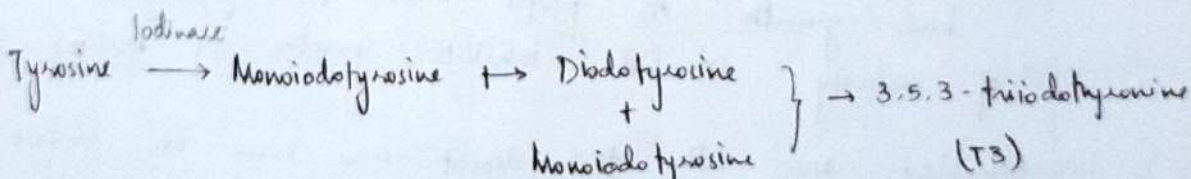 Iodinase
Tyrosine → Monoiodotyrosine → Diodotyrosine } → 3.5.3 - triiodothyronine
+
Monoiodotyrosine (T3)